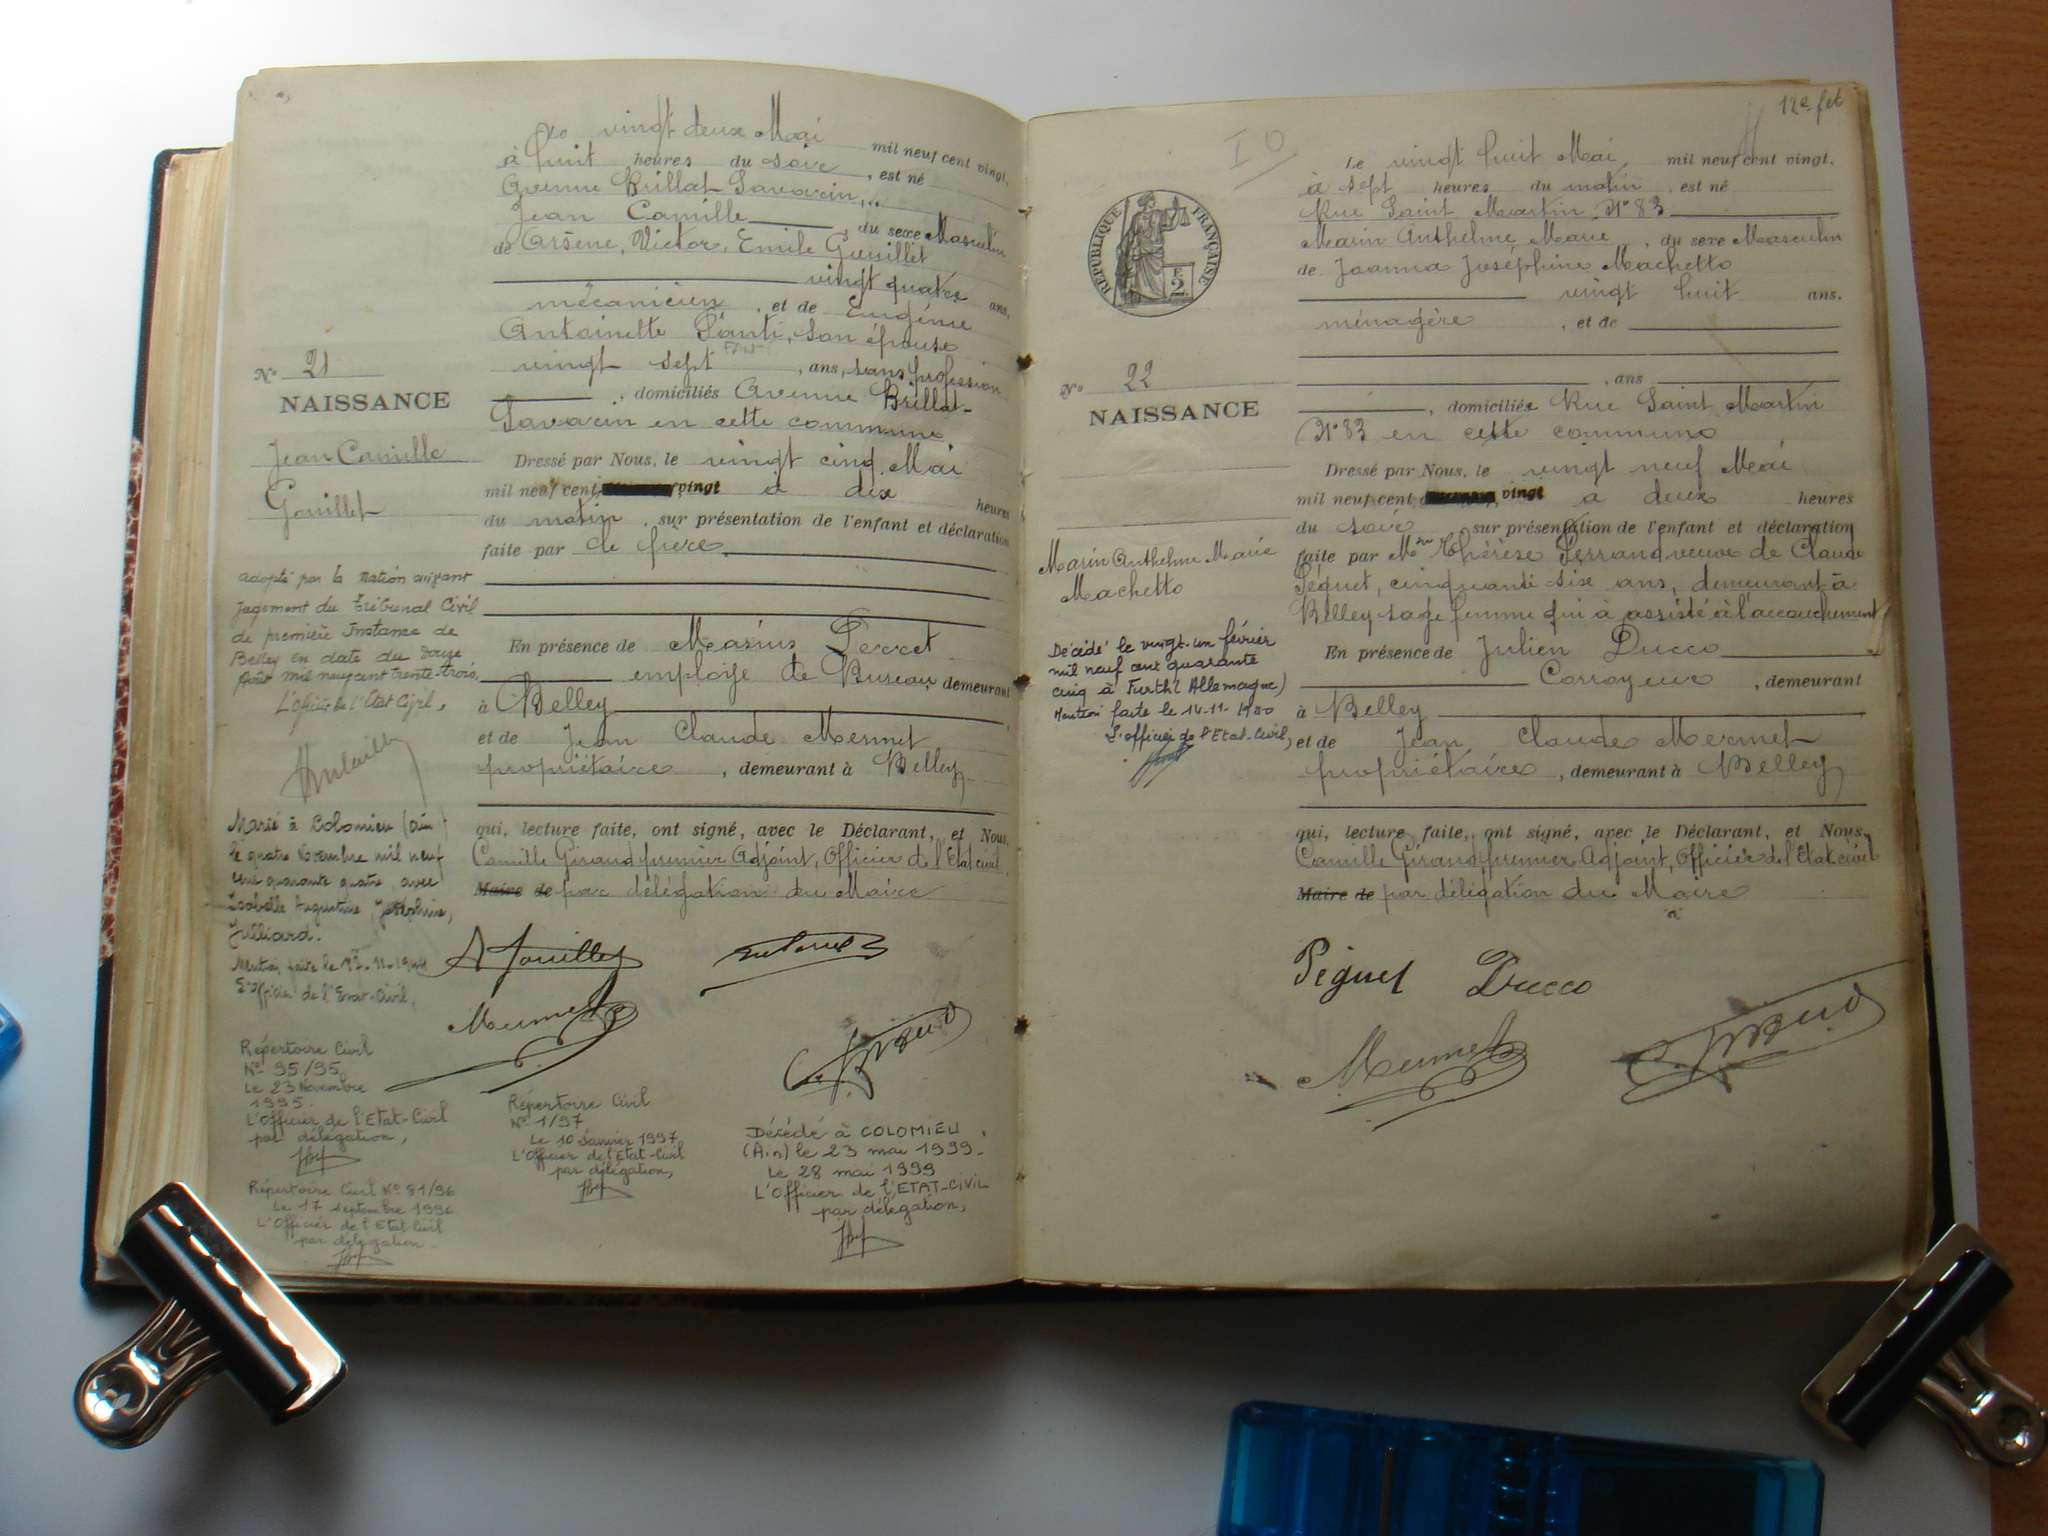 Le vingt deux Mai mil neuf cent vingt,
à huit heures du soir, est né
Avenue Brillat Savarin,
Jean Camille, du sexe Masculin
de Arsène, Victor, Emile Gouillet
vingt quatre ans,
mécanicien, et de Eugénie
Antoinette Santi, son épouse
vingt sept ans, sans profession
, domiciliés Avenue Brillat-
Savarin en cette commune
Dressé par Nous, le vingt cinq Mai
mil neuf cent vingt à dix heures
du matin, sur présentation de l'enfant et déclaration
faite par le père
En présence de Marius Perret
employé de Bureau, demeurant
à Belley
et de Jean Claude Mermet
propriétaire, demeurant à Belley
qui, lecture faite, ont signé, avec le Déclarant, et Nous,
Camille Giraud premier Adjoint, Officier de l'Etat civil
Maire de par délégation du Maire
A Gouillet
Mermet
N° 21
NAISSANCE
Jean Camille
Gouillet
adopté par la Nation suivant
jugement du Tribunal Civil
de première Instance de
Belley en date du douze
Août mil neuf cent trente trois.
L'officier de l'Etat Civil,
Marié à Colomieu (Ain)
le quatre Novembre mil neuf
cent quarante quatre, avec
Isabelle Augustine, Joséphine,
Julliard.
Mention faite le 11-1944
L'officier de l'Etat-Civil,
Répertoire Civil
N° 95/95
Le 23 Novembre
1995.
L'Officier de l'Etat-Civil
par délégation,
Répertoire Civil N° 81/96
Le 17 septembre 1996
L'Officier de l'Etat Civil
par délégation
Répertoire Civil
N° 1/97
Le 10 Janvier 1997
L'Officier de l'Etat-Civil
par délégation,
Décédé à COLOMIEU
(Ain) le 23 mai 1999.
Le 28 mai 1999
L'Officier de l'ETAT-CIVIL
par délégation,
12e fet
10
RÉPUBLIQUE FRANÇAISE
2
Le vingt huit Mai mil neuf cent vingt,
à sept heures du matin, est né
Rue Saint Martin N° 83
Marin Anthelme Marie, du sexe Masculin
de Joanna Joséphine Machetto
vingt huit ans,
ménagère, et de
, ans
, domiciliée Rue Saint Martin
N° 83 en cette commune
Dressé par Nous, le vingt neuf Mai
mil neuf cent vingt à deux heures
du soir, sur présentation de l'enfant et déclaration
faite par Thérèse Ferrand veuve de Claude
Péguet, cinquante six ans, demeurant à
Belley sage femme qui a assisté à l'accouchement
En présence de Julien Ducco
Corroyeur, demeurant
à Belley
et de Jean Claude Mermet
propriétaire, demeurant à Belley
qui, lecture faite, ont signé, avec le Déclarant, et Nous,
Camille Giraud premier Adjoint, Officier de l'Etat civil
Maire de par délégation du Maire
Péguet Ducco
Mermet
N° 22
NAISSANCE
Marin Anthelme Marie
Machetto
Décédé le vingt-un février
mil neuf cent quarante
cinq à Furth (Allemagne)
Mention faite le 14-11-
L'officier de l'Etat-Civil,